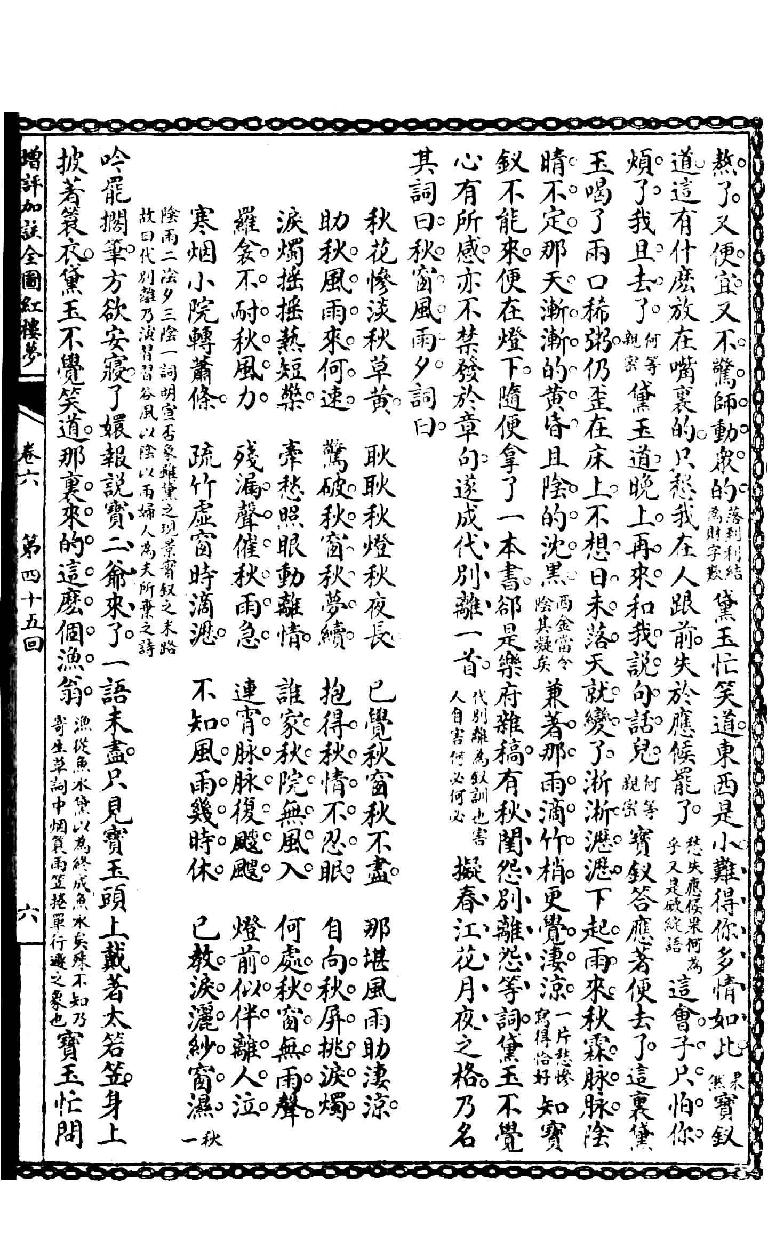 熬了又便宜又不驚師動衆的落到利結為財字歎黛玉忙笑道東西是小難得你多情如此果然寶釵
道這有什麽放在嘴裏的只愁我在人跟前失於應候罷了愁失應候果何為乎又是欲綻語這會子只怕你
煩了我且去了何等親密黛玉道晚上再來和我説句話兒何等親密寶釵答應著便去了這裏黛
玉喝了兩口稀粥仍歪在床上不想日未落天就變了淅淅瀝瀝下起雨來秋霖脉脉陰
晴不定那天漸漸的黄昏且陰的沈黑酉金當令陰其凝矣兼著那雨滴竹梢更覺淒涼一片愁慘寫得恰好知寶
釵不能來便在燈下隨便拿了一本書卻是樂府雜稿有秋閨怨別離怨等詞黛玉不覺
心有所感亦不禁發於章句遂成代別離一首代別離為釵訓也害人自害何必何必擬春江花月夜之格乃名
其詞曰秋窗風雨夕詞曰
秋花慘淡秋草黄 耿耿秋燈秋夜長 已覺秋窗秋不盡 那堪風雨助淒涼
助秋風雨來何速 驚破秋窗秋夢續 抱得秋情不忍眠 自向秋屏挑淚燭
淚燭摇摇爇短檠 牽愁照眼動離情 誰家秋院無風入 何處秋窗無雨聲
羅衾不耐秋風力 殘漏聲催秋雨急 連宵脉脉復颼颼 燈前似伴離人泣
寒烟小院轉蕭條 疏竹虛窗時滴瀝 不知風雨幾時休 已教淚灑紗窗濕秋一
陰雨二陰夕三陰一詞明宣否象雖黛之現景實釵之末路
故曰代別離乃演習習谷風以陰以雨婦人為夫所棄之詩
吟罷擱筆方欲安寢丫嬛報説寶二爺來了一語未盡只見寶玉頭上戴著太箬笠身上
披著簑衣黛玉不覺笑道那裏來的這麽個漁翁漁從魚水黛以為終成魚水矣殊不知乃寄生草詞中烟簑雨笠捲單行邊之象也寶玉忙問
增評加註全圖紅樓夢 卷六 第四十五回 六